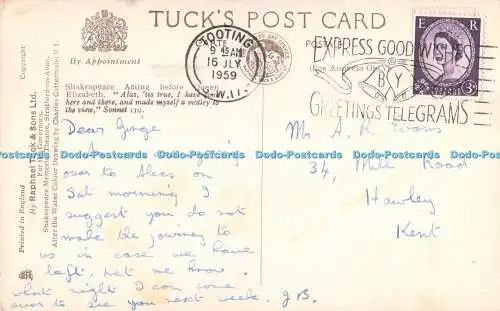 TUCK'S POST CARD
By Appointment
Shakespeare Acting before Queen
Elizabeth. "Alas, 'tis true, I have gone
here and there, and made myself a motley to
the view," Sonnet 110.
Copyright
By Raphael Tuck & Sons Ltd.
For the Governors,
Shakespeare Memorial Theatre, Stratford-on-Avon.
After the Water Colour Drawing by Charles Cattermole, R.I.
Printed in England
TOOTING
9 15AM
16 JLY
1959
S.W.17.
EXPRESS GOOD WISHES
BY
GREETINGS TELEGRAMS
E R
3D
Dear
over to
Sat morning I
suggest you do not
make the journey to
us in case we have
left, Let me know
what night I can come
over to see you next week. JB.
Mr A. R. Evans
34, Mill Road
Hawley
Kent
Dodo-Postcards Dodo-Postcards Dodo-Postcards Dodo-Postcards Dodo-Postcards